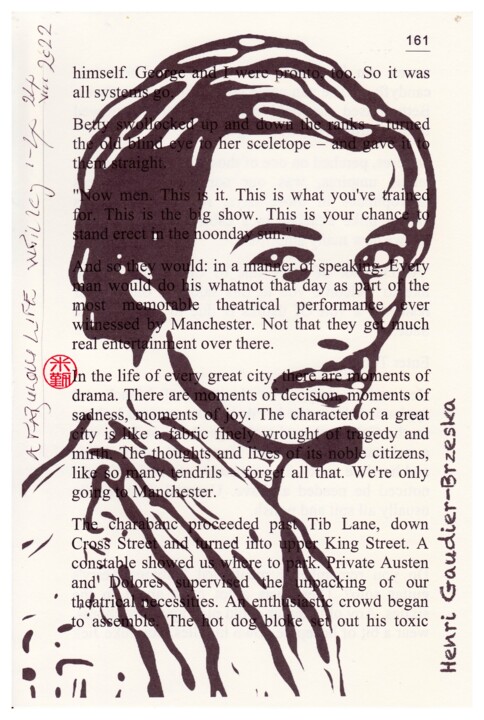 161
himself. George and I were pronto, too. So it was
all systems go.
Betty swollocked up and down the ranks – turned
the old blind eye to her sceletope – and gave it to
them straight.
"Now men. This is it. This is what you've trained
for. This is the big show. This is your chance to
stand erect in the noonday sun."
And so they would: in a manner of speaking. Every
man would do his whatnot that day as part of the
most memorable theatrical performance ever
witnessed by Manchester. Not that they get much
real entertainment over there.
In the life of every great city, there are moments of
drama. There are moments of decision, moments of
sadness, moments of joy. The character of a great
city is like a fabric finely wrought of tragedy and
mirth. The thoughts and lives of its noble citizens,
like so many tendrils – forget all that. We're only
going to Manchester.
The charabanc proceeded past Tib Lane, down
Cross Street and turned into upper King Street. A
constable showed us where to park. Private Austen
and Dolores supervised the unpacking of our
theatrical necessities. An enthusiastic crowd began
to assemble. The hot dog bloke set out his toxic
Henri Gaudier-Brzeska
2022